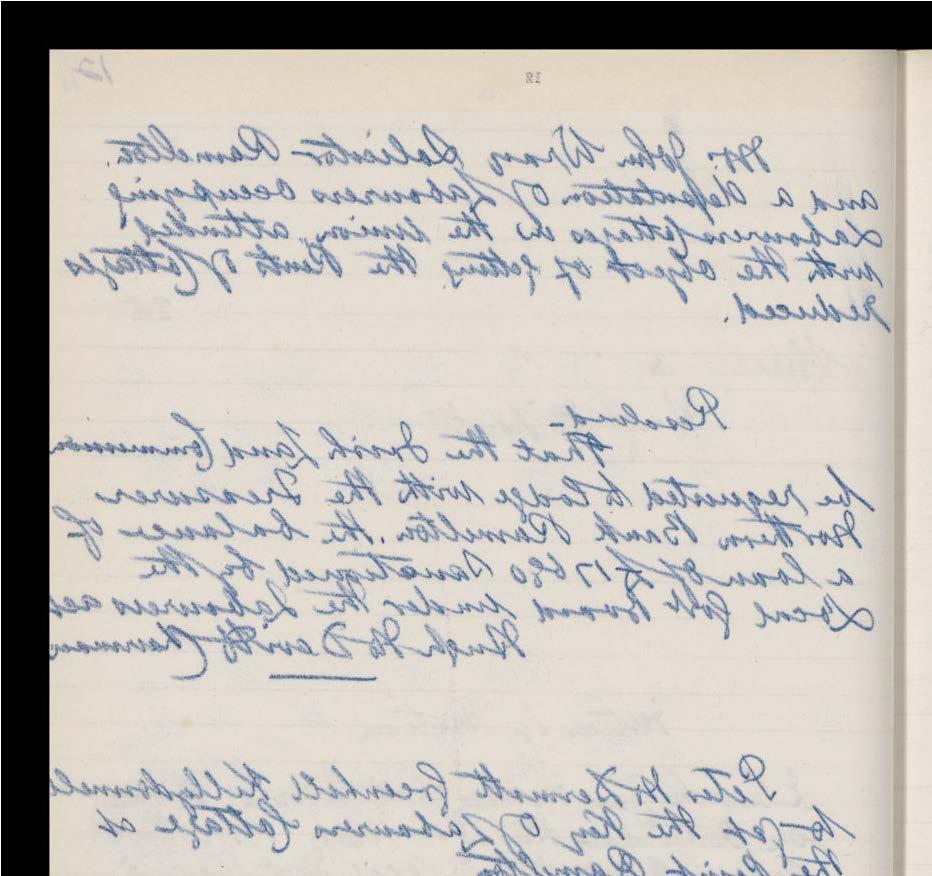 12
12
Mr. John Wray Solicitor Ramelton.
and a deputation of Labourers occupying
Labourers Cottages in the union, attended,
with the object of getting the Rents of Cottages
reduced.
Resolved—
That the Irish Land Commission
be requested to lodge with the Treasurer
Northern Bank Ramelton, the balance of
a loan of £17680 Sanctioned by the
Local Govt Board under the Labourers acts
Hugh Chairman
Peter McDermott Greenhill Killydonnell
to get the Key of Labourers Cottage at
the Ramelton